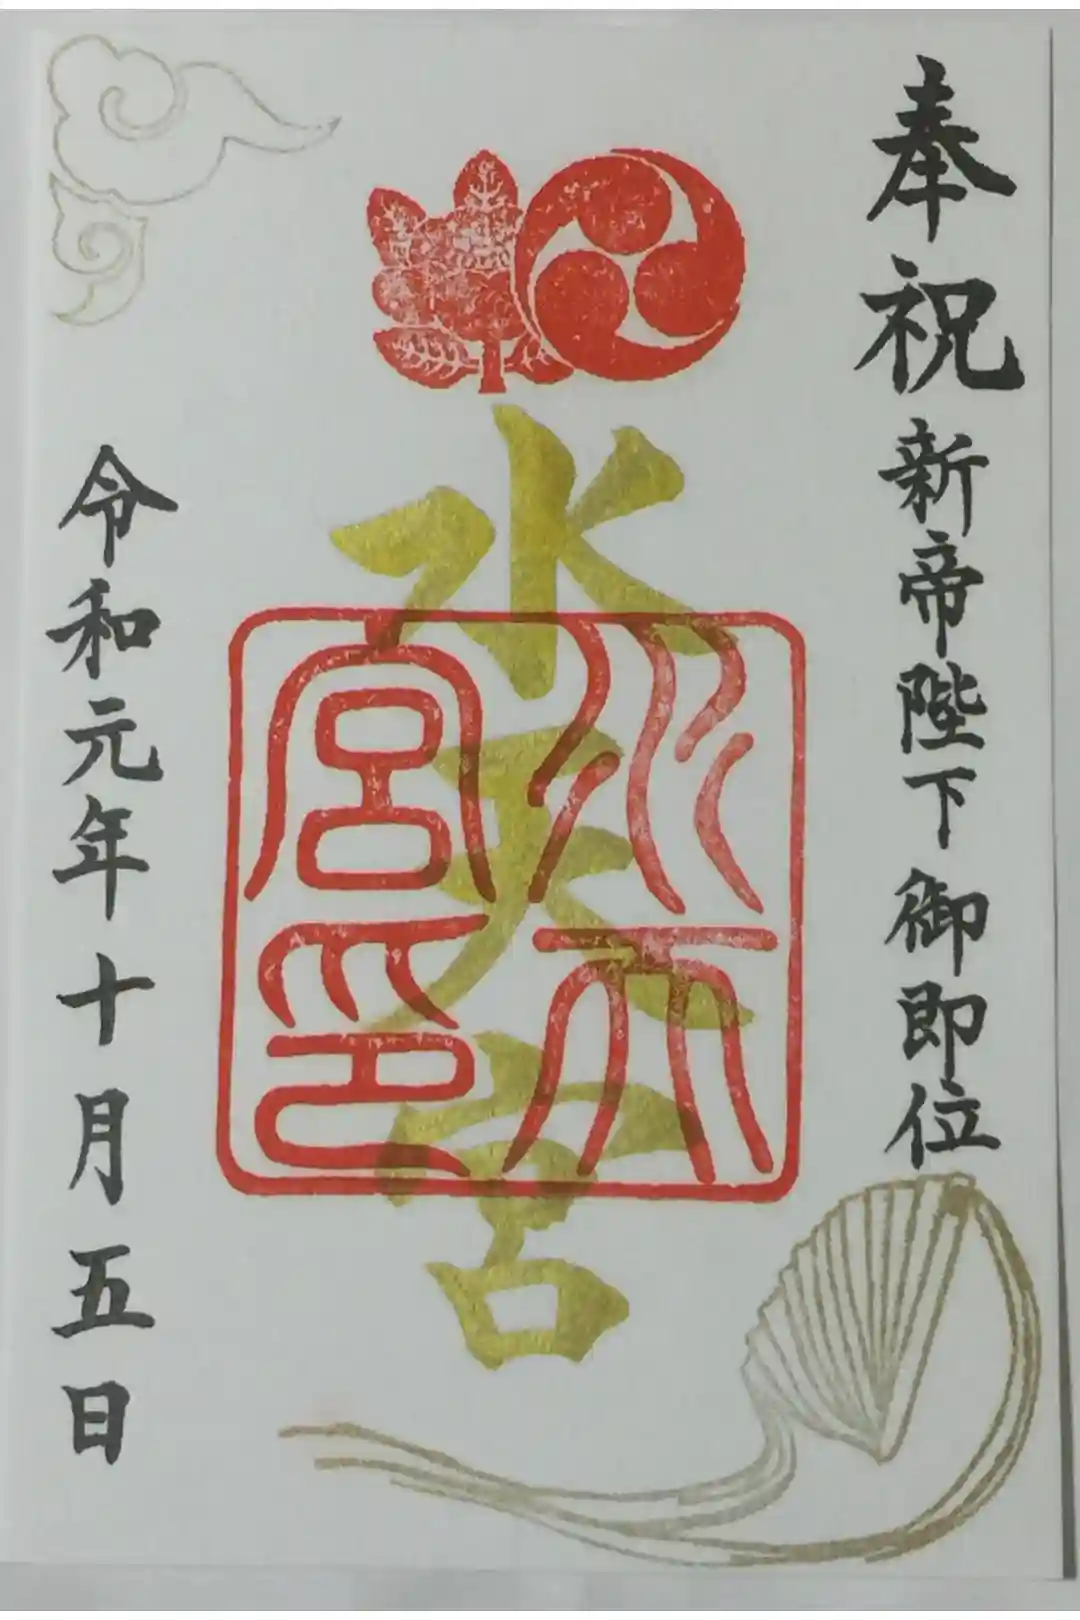 奉祝 新帝陛下御即位
水天宮
水天宮印
令和元年十月五日